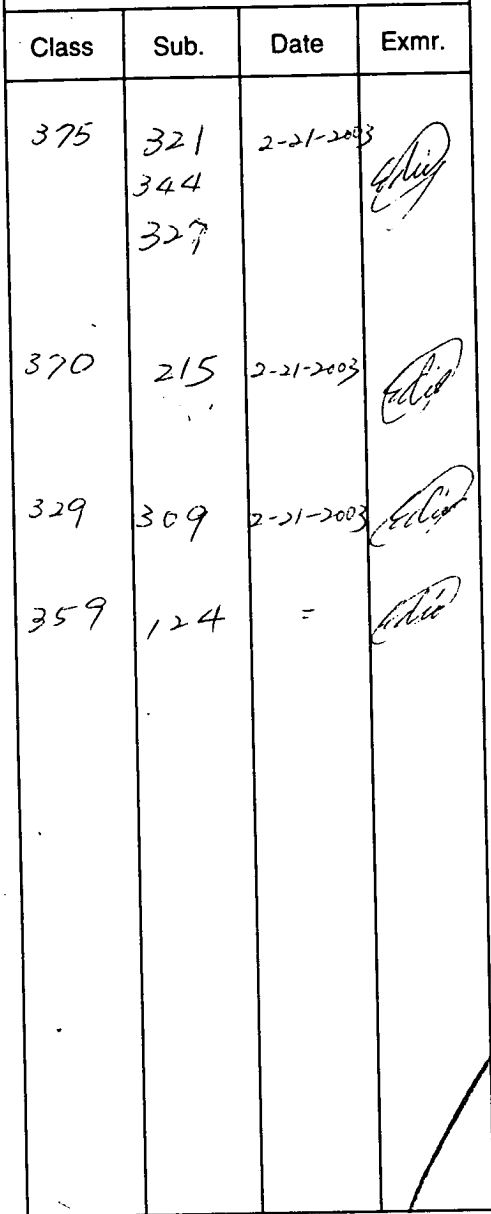 Class Sub. Date Exmr.
375 321 2-21-2003
344
327
370 215 2-21-2003
329 309 2-21-2003
359 124 =